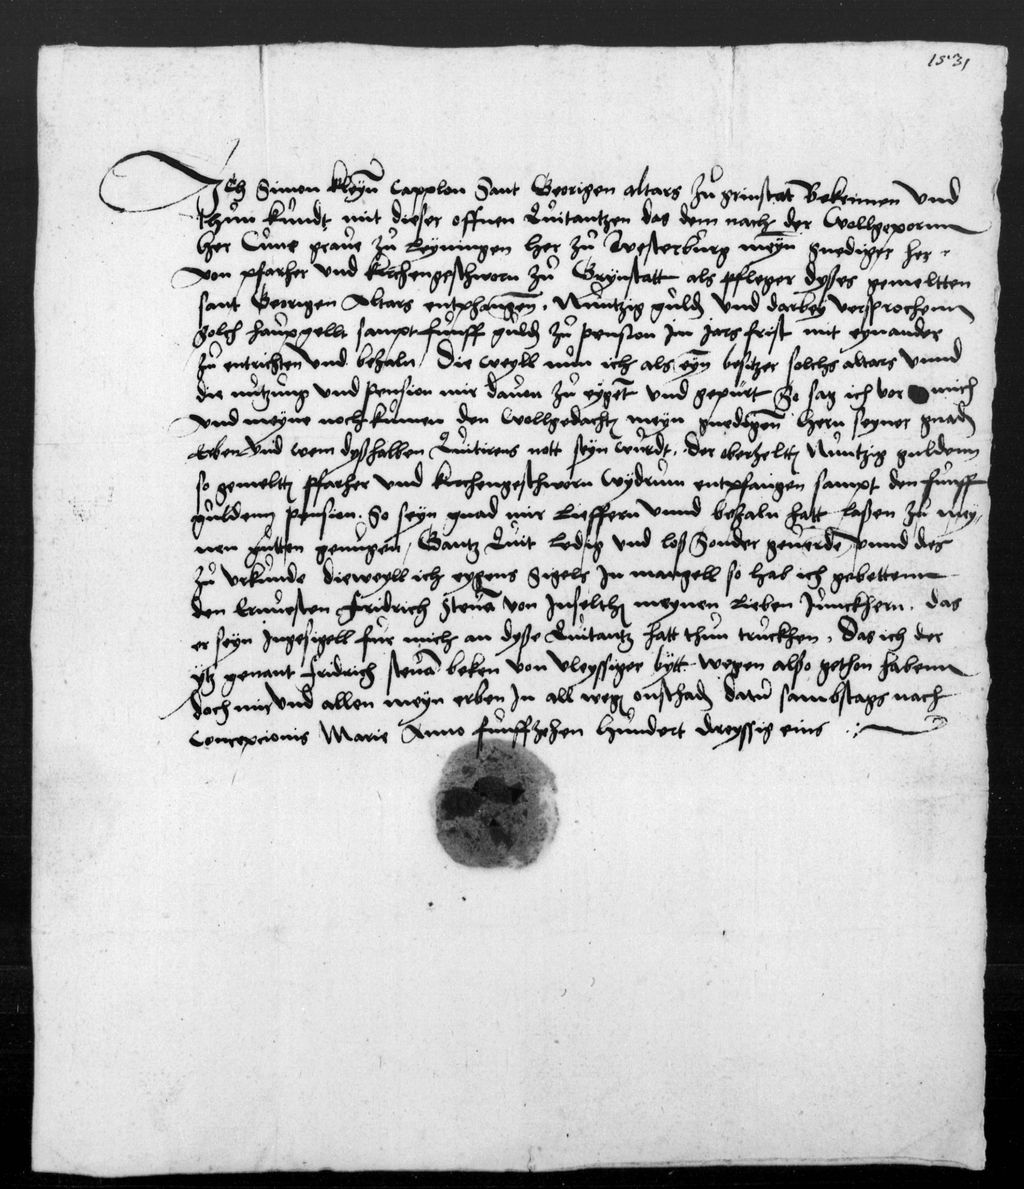 1531
Ich Simon kleyn Capplon Sant Georigen altars zu grinstat Bekennen und
thun kundt mit dieser offnen Quitantzen das dem nach der Wollgeporn
her Cune grave zu Leyningen her zu Westerburg meyn gnediger her
von pfarher und kirchengeschworn zu Grynstatt als pfleger dyses gemeltten
sant Georigen Altars entphangen, Nuntzig guld und darbey versprochenn
solch haupgellt sampt funff guld zu pension In jars frist mit eynander
zu entrichten und bezaln, Die weyll nun ich als eyn besitzer solchs altars unnd
die nutzung und Pension mir davon zu eyget und gepurt So sag ich vor mich
und meyne nochkumen den Wollgedacht meyn gnedigen hern seyner gnad
Erben und wem dyshalben Quitirens nott seyn wurdt, der oberzeltt Nuntzig guldenn
so gemeltt Pfarher und kirchengeschworn wydrum entpfangen sampt den funff
guldenn Pension. So seyn gnad mir Lieffern unnd bezaln hatt lassen zu mey-
nen gutten genugen, Gantz Quit ledig und los Sonder geverde, unnd des
zu urkunde dieweyll ich eygens Sigels In mangell so hab ich gebettenn
den Ernvesten Fridrich von Inselth meynen Lieben Junckhern, das
er seyn Ingesigell fur mich an dyse Quitantz hatt thun truckhen, Das ich der
ytz genant fridrich beken von vleyssiger bytt wegen also gethon habenn
doch mir und allen meyn erben In all weg onschad datu sambstags nach
Concepcionis Marie Anno funffzehen hundert dreyssig eins